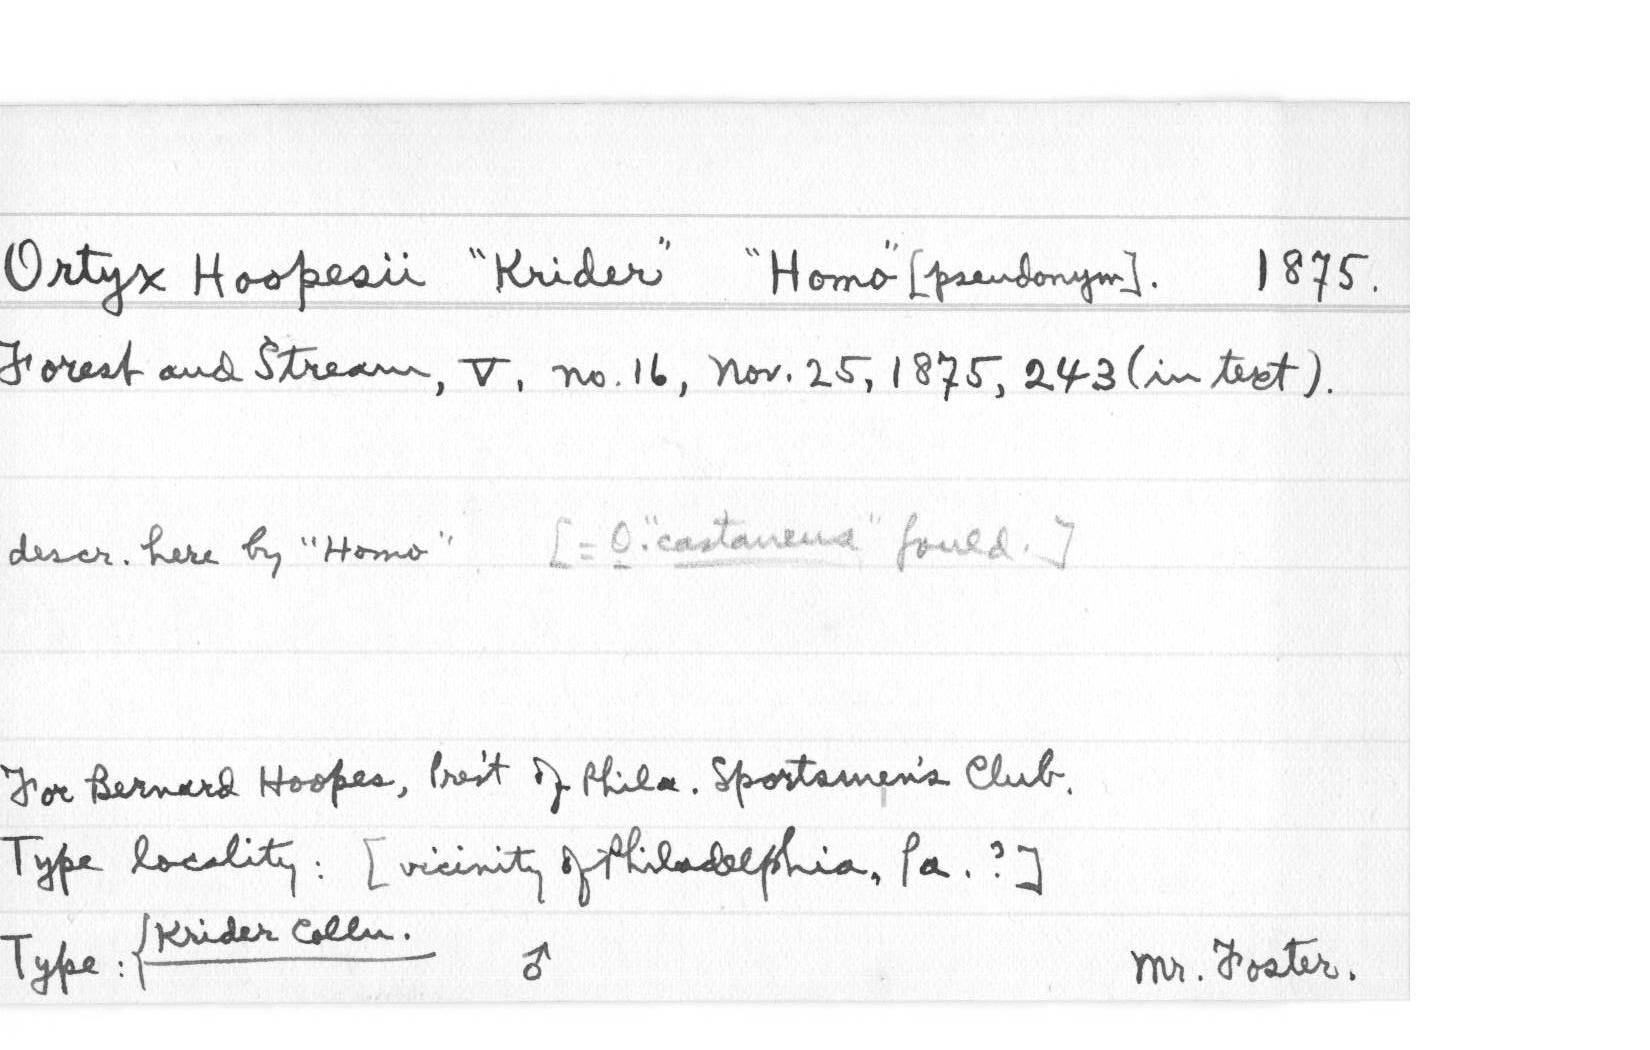 Ortyx Hoopesii "Krider" "Homo" [pseudonym]. 1875.
Forest and Stream, V, no. 16, Nov. 25, 1875, 243 (in text).
descr. here by "Homo" [= O. "castaneus" Gould.]
For Bernard Hoopes, Pres't of Phila. Sportsmen's Club.
Type locality: [vicinity of Philadelphia, Pa.?]
Type: {Krider Colln. ♂ Mr. Foster.